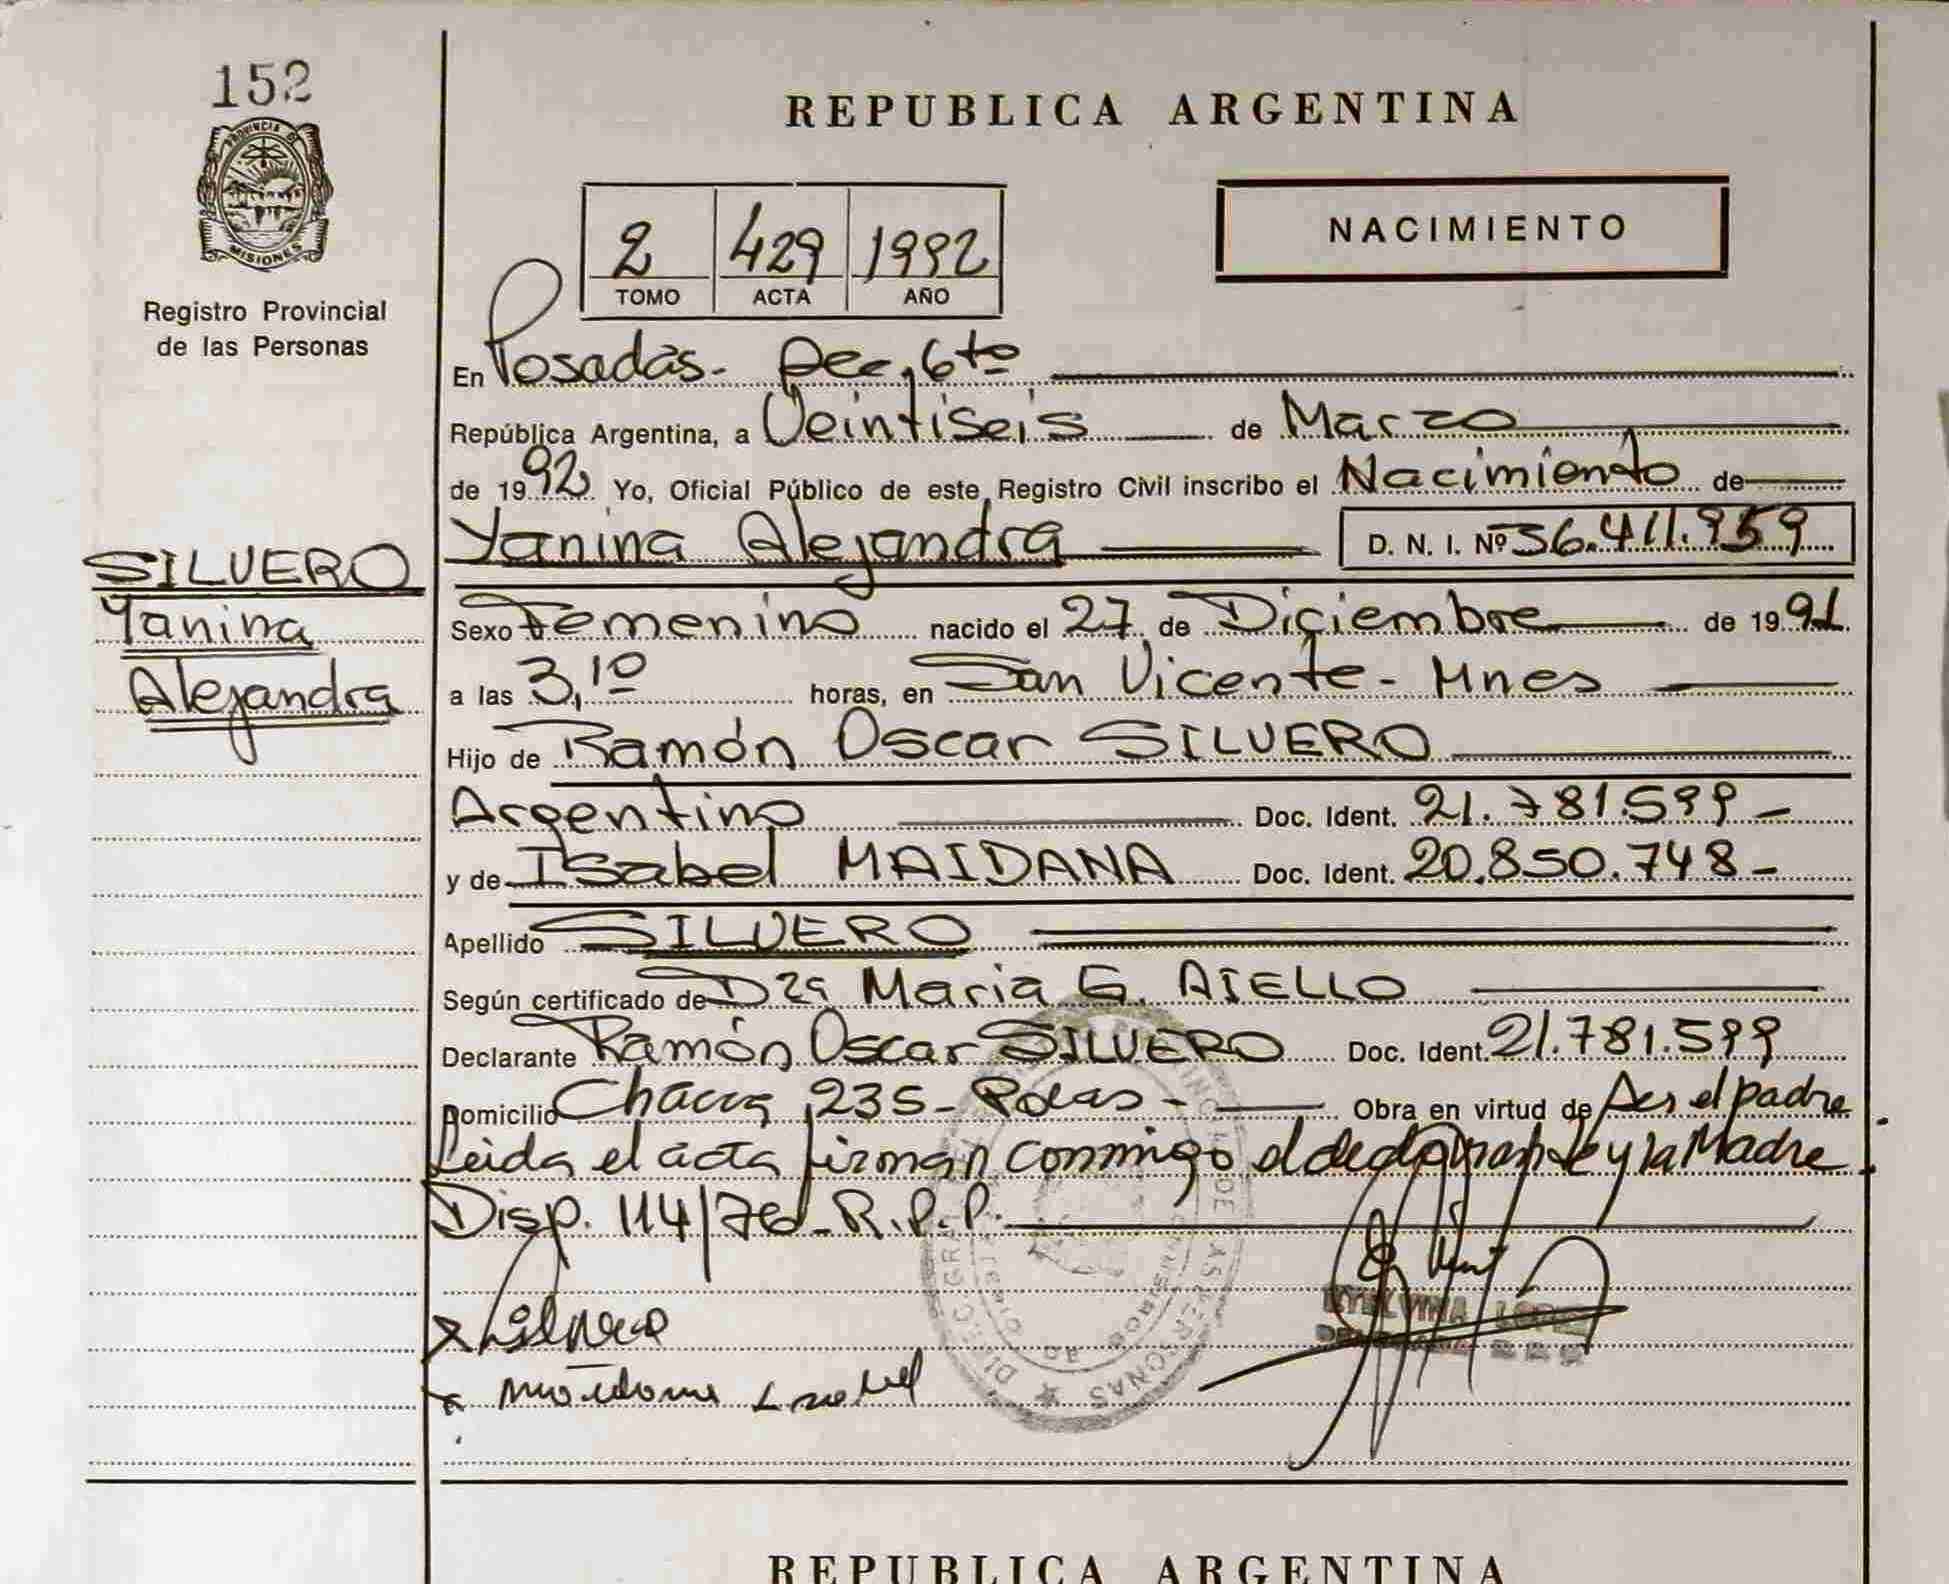 152
REPUBLICA ARGENTINA
PROVINCIA DE
MISIONES
Registro Provincial
de las Personas
2 429 1992
TOMO ACTA AÑO
NACIMIENTO
En Posadas - Dec. 6to
República Argentina, a Veintiseis de Marzo
de 1992 Yo, Oficial Público de este Registro Civil inscribo el Nacimiento de
Yanina Alejandra D. N. I. Nº 36.411.959
SILVERO
Yanina
Alejandra
Sexo Femenino nacido el 27 de Diciembre de 1991
a las 3,10 horas, en San Vicente - Mnes
Hijo de Ramón Oscar SILVERO
Argentino Doc. Ident. 21.781.599 -
y de Isabel MAIDANA Doc. Ident. 20.850.748 -
Apellido SILVERO
Según certificado de Dra Maria G. AIELLO
Declarante Ramón Oscar SILVERO Doc. Ident. 21.781.599
Domicilio Chacra 235 - Pdas - Obra en virtud de ser el padre
Leida el acta firman conmigo el declarante y la Madre.
Disp. 114/78 - R.P.P.
Silvero
Maidana Isabel
REPUBLICA ARGENTINA